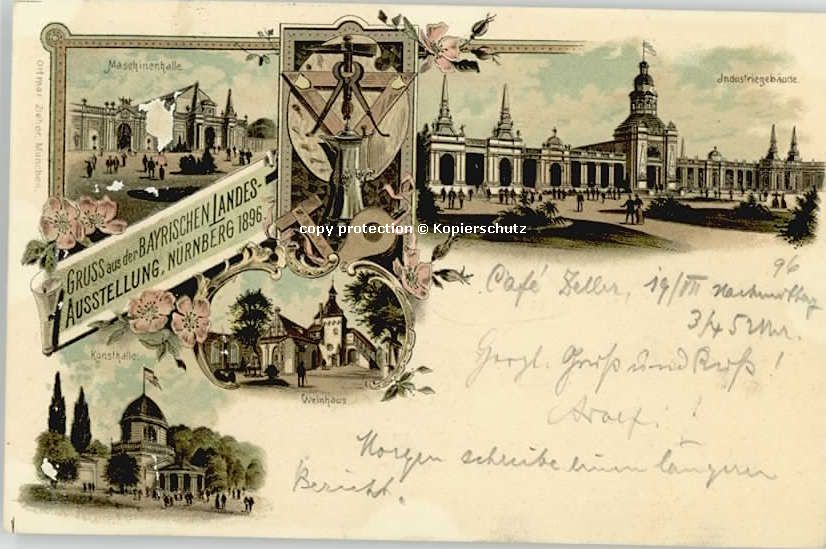 Maschinenhalle
Industriegebäude.
Ottmar Zieher, München.
GRUSS aus der BAYRISCHEN LANDES-
AUSSTELLUNG, NÜRNBERG 1896.
copy protection © Kopierschutz
Kunsthalle.
Weinhaus
96
Café Zeller, 19/VII Nachmittag
3/4 5 Uhr.
Herzl. Gruß und Kuß!
Adolf!
Morgen schreibe einen längeren
Bericht.